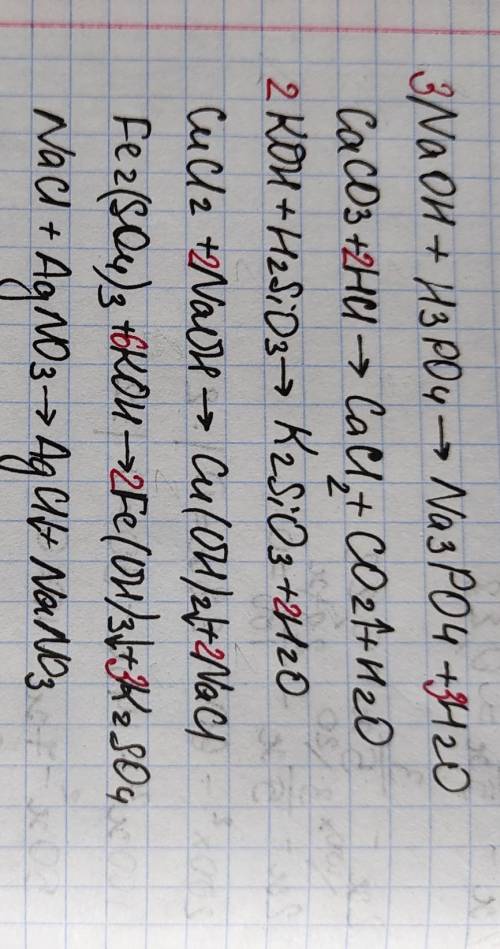 3NaOH + H3PO4 → Na3PO4 + 3H2O
CaCO3 + 2HCl → CaCl2 + CO2↑ + H2O
2KOH + H2SiO3 → K2SiO3 + 2H2O
CuCl2 + 2NaOH → Cu(OH)2↓ + 2NaCl
Fe2(SO4)3 + 6KOH → 2Fe(OH)3↓ + 3K2SO4
NaCl + AgNO3 → AgCl↓ + NaNO3